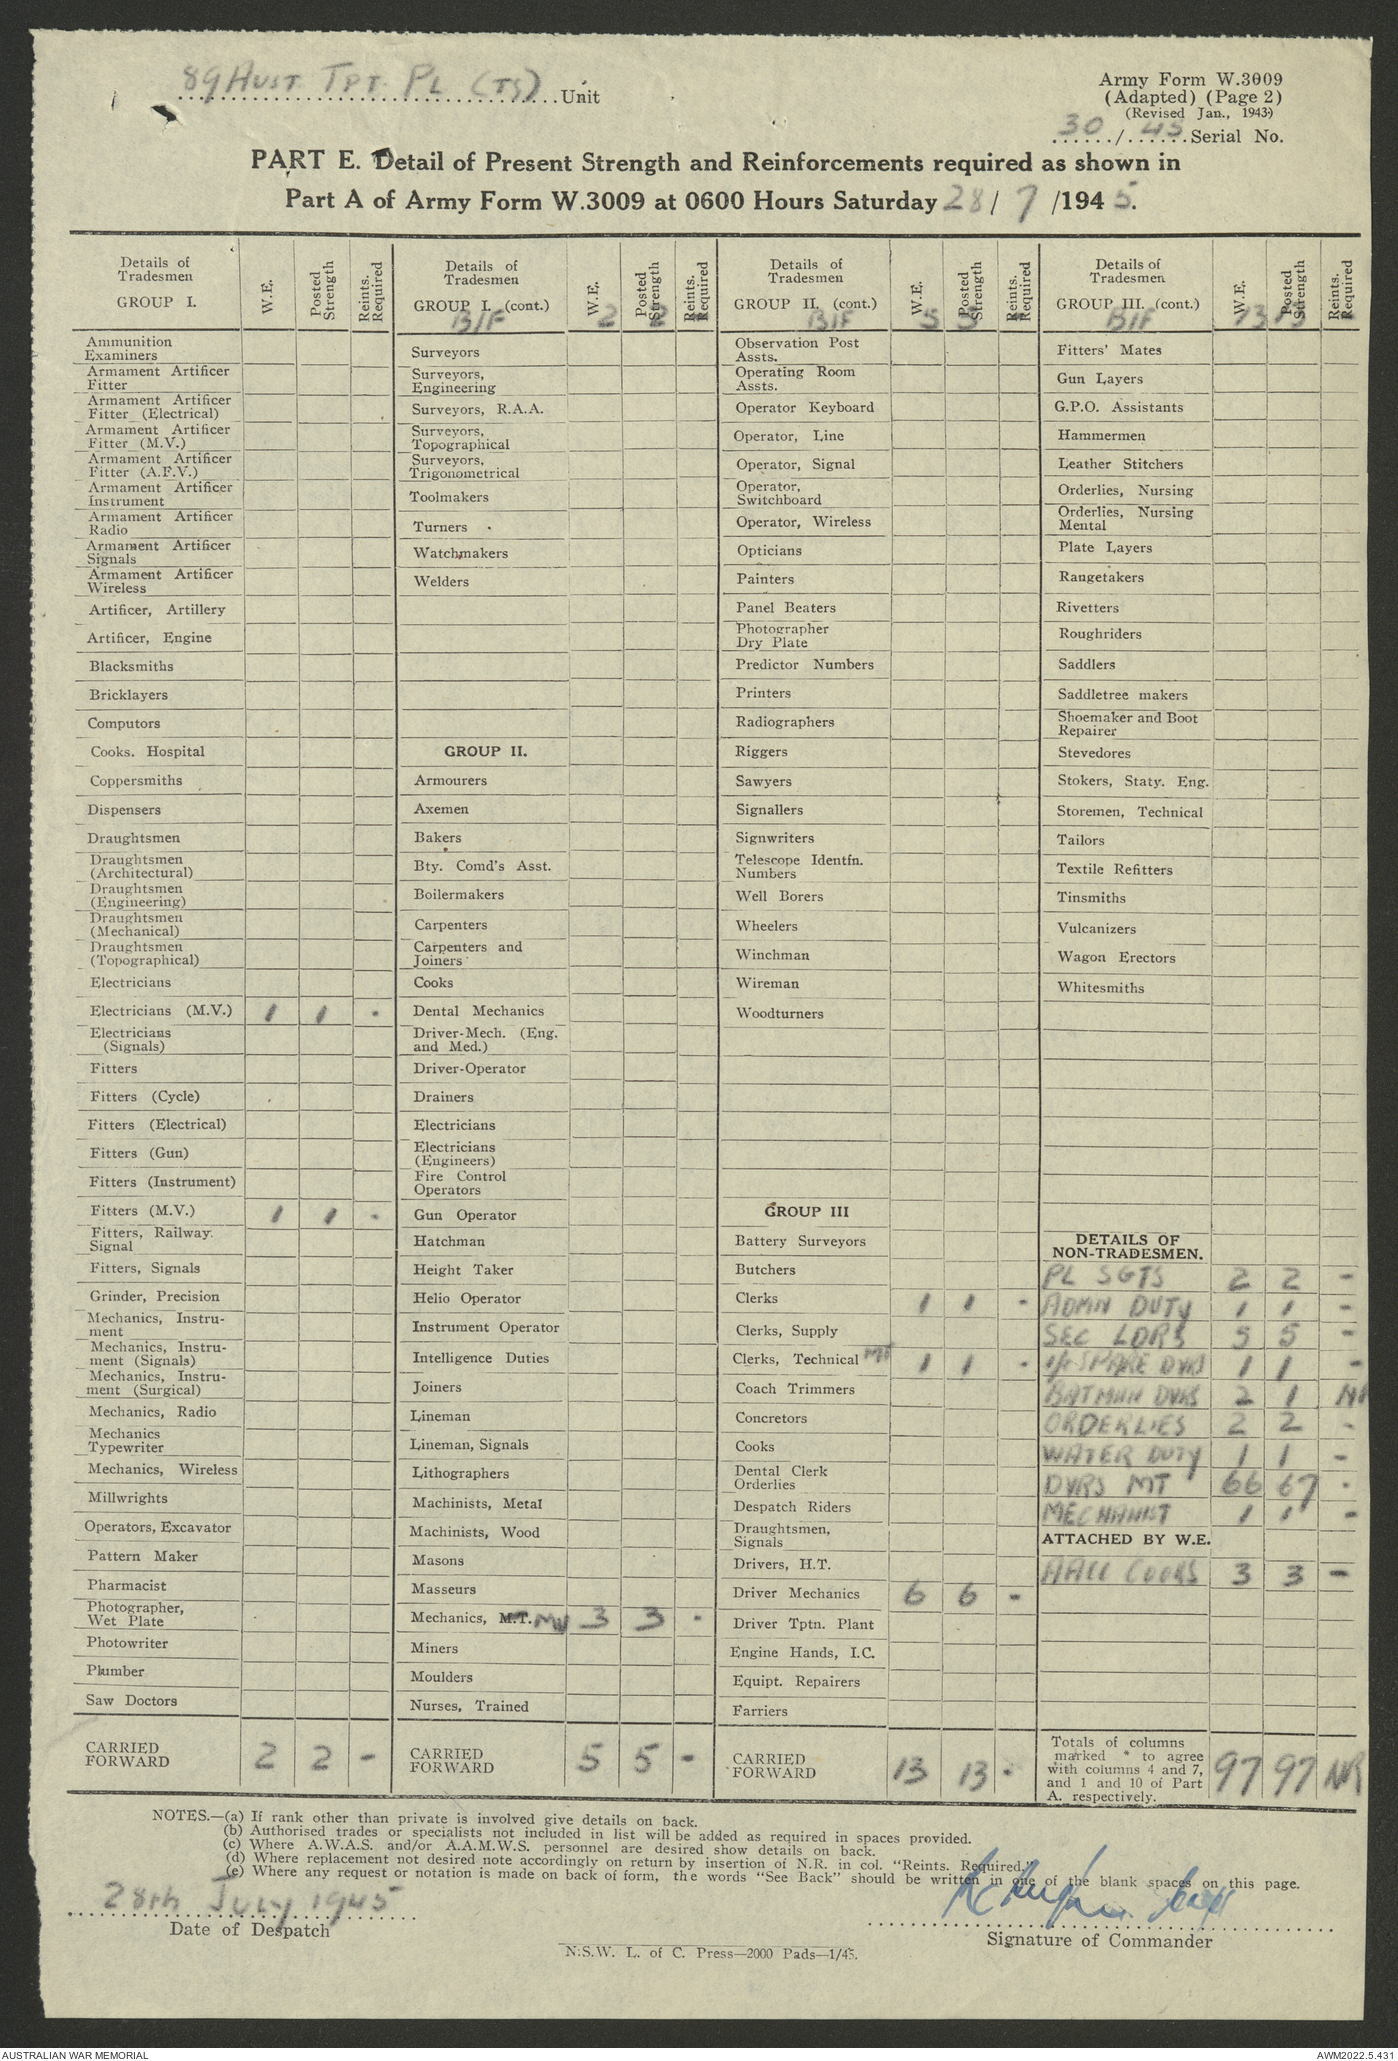 89 AUST. TPT. PL (TS) Unit
Army Form W.3009
(Adapted) (Page 2)
(Revised Jan., 1943)
30 / 45 Serial No.
PART E. Detail of Present Strength and Reinforcements required as shown in
Part A of Army Form W.3009 at 0600 Hours Saturday 28 / 7 /1945.
Details of Tradesmen
GROUP I.
W.E.
Posted Strength
Reints. Required
Ammunition Examiners
Armament Artificer Fitter
Armament Artificer Fitter (Electrical)
Armament Artificer Fitter (M.V.)
Armament Artificer Fitter (A.F.V.)
Armament Artificer Instrument
Armament Artificer Radio
Armament Artificer Signals
Armament Artificer Wireless
Artificer, Artillery
Artificer, Engine
Blacksmiths
Bricklayers
Computors
Cooks. Hospital
Coppersmiths
Dispensers
Draughtsmen
Draughtsmen (Architectural)
Draughtsmen (Engineering)
Draughtsmen (Mechanical)
Draughtsmen (Topographical)
Electricians
Electricians (M.V.) 1 1 -
Electricians (Signals)
Fitters
Fitters (Cycle)
Fitters (Electrical)
Fitters (Gun)
Fitters (Instrument)
Fitters (M.V.) 1 1 -
Fitters, Railway. Signal
Fitters, Signals
Grinder, Precision
Mechanics, Instrument
Mechanics, Instrument (Signals)
Mechanics, Instrument (Surgical)
Mechanics, Radio
Mechanics Typewriter
Mechanics, Wireless
Millwrights
Operators, Excavator
Pattern Maker
Pharmacist
Photographer, Wet Plate
Photowriter
Plumber
Saw Doctors
CARRIED FORWARD 2 2 -
Details of Tradesmen
GROUP I. (cont.)
W.E.
Posted Strength
Reints. Required
B/F 2 2
Surveyors
Surveyors, Engineering
Surveyors, R.A.A.
Surveyors, Topographical
Surveyors, Trigonometrical
Toolmakers
Turners
Watchmakers
Welders
GROUP II.
Armourers
Axemen
Bakers
Bty. Comd's Asst.
Boilermakers
Carpenters
Carpenters and Joiners
Cooks
Dental Mechanics
Driver-Mech. (Eng. and Med.)
Driver-Operator
Drainers
Electricians
Electricians (Engineers)
Fire Control Operators
Gun Operator
Hatchman
Height Taker
Helio Operator
Instrument Operator
Intelligence Duties
Joiners
Lineman
Lineman, Signals
Lithographers
Machinists, Metal
Machinists, Wood
Masons
Masseurs
Mechanics, M.T. MV 3 3 -
Miners
Moulders
Nurses, Trained
CARRIED FORWARD 5 5 -
Details of Tradesmen
GROUP II. (cont.)
W.E.
Posted Strength
Reints. Required
B/F 5 5
Observation Post Assts.
Operating Room Assts.
Operator Keyboard
Operator, Line
Operator, Signal
Operator, Switchboard
Operator, Wireless
Opticians
Painters
Panel Beaters
Photographer Dry Plate
Predictor Numbers
Printers
Radiographers
Riggers
Sawyers
Signallers
Signwriters
Telescope Identfn. Numbers
Well Borers
Wheelers
Winchman
Wireman
Woodturners
GROUP III
Battery Surveyors
Butchers
Clerks 1 1 -
Clerks, Supply
Clerks, Technical MT 1 1 -
Coach Trimmers
Concretors
Cooks
Dental Clerk Orderlies
Despatch Riders
Draughtsmen, Signals
Drivers, H.T.
Driver Mechanics 6 6 -
Driver Tptn. Plant
Engine Hands, I.C.
Equipt. Repairers
Farriers
CARRIED FORWARD 13 13 -
Details of Tradesmen
GROUP III. (cont.)
W.E.
Posted Strength
Reints. Required
B/F 13 13
Fitters' Mates
Gun Layers
G.P.O. Assistants
Hammermen
Leather Stitchers
Orderlies, Nursing
Orderlies, Nursing Mental
Plate Layers
Rangetakers
Rivetters
Roughriders
Saddlers
Saddletree makers
Shoemaker and Boot Repairer
Stevedores
Stokers, Staty. Eng.
Storemen, Technical
Tailors
Textile Refitters
Tinsmiths
Vulcanizers
Wagon Erectors
Whitesmiths
DETAILS OF NON-TRADESMEN.
PL SGTS 2 2 -
ADMN DUTY 1 1 -
SEC LDRS 5 5 -
SPARE DVRS 1 1 -
BATMAN DVRS 2 1
ORDERLIES 2 2 -
WATER DUTY 1 1 -
DVRS MT 66 67 -
MECHANIST 1 1 -
ATTACHED BY W.E.
AACC COOKS 3 3 -
Totals of columns marked * to agree with columns 4 and 7, and 1 and 10 of Part A. respectively. 97 97 NR
NOTES.—(a) If rank other than private is involved give details on back.
(b) Authorised trades or specialists not included in list will be added as required in spaces provided.
(c) Where A.W.A.S. and/or A.A.M.W.S. personnel are desired show details on back.
(d) Where replacement not desired note accordingly on return by insertion of N.R. in col. "Reints. Required."
(e) Where any request or notation is made on back of form, the words "See Back" should be written in one of the blank spaces on this page.
28th July 1945
Date of Despatch
Signature of Commander
N.S.W. L. of C. Press—2000 Pads—1/45.
AUSTRALIAN WAR MEMORIAL
AWM2022.5.431